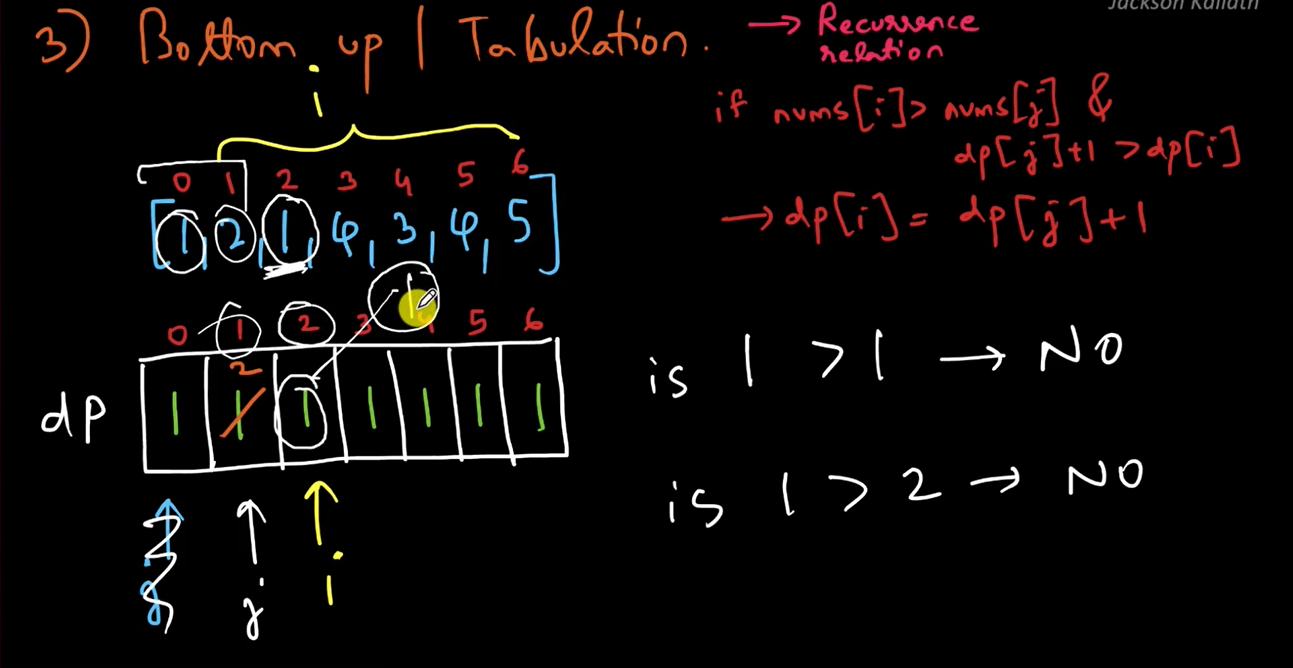 Jackson Kailath
3) Bottom up | Tabulation.
→ Recurrence
relation
i
if nums[i] > nums[j] &
dp[j]+1 > dp[i]
→ dp[i] = dp[j]+1
0 1 2 3 4 5 6
[1, 2, 1, 4, 3, 4, 5]
1
0 1 2 3 4 5 6
is 1 > 1 → NO
2
dp 1 1 1 1 1 1 1
is 1 > 2 → NO
j j i